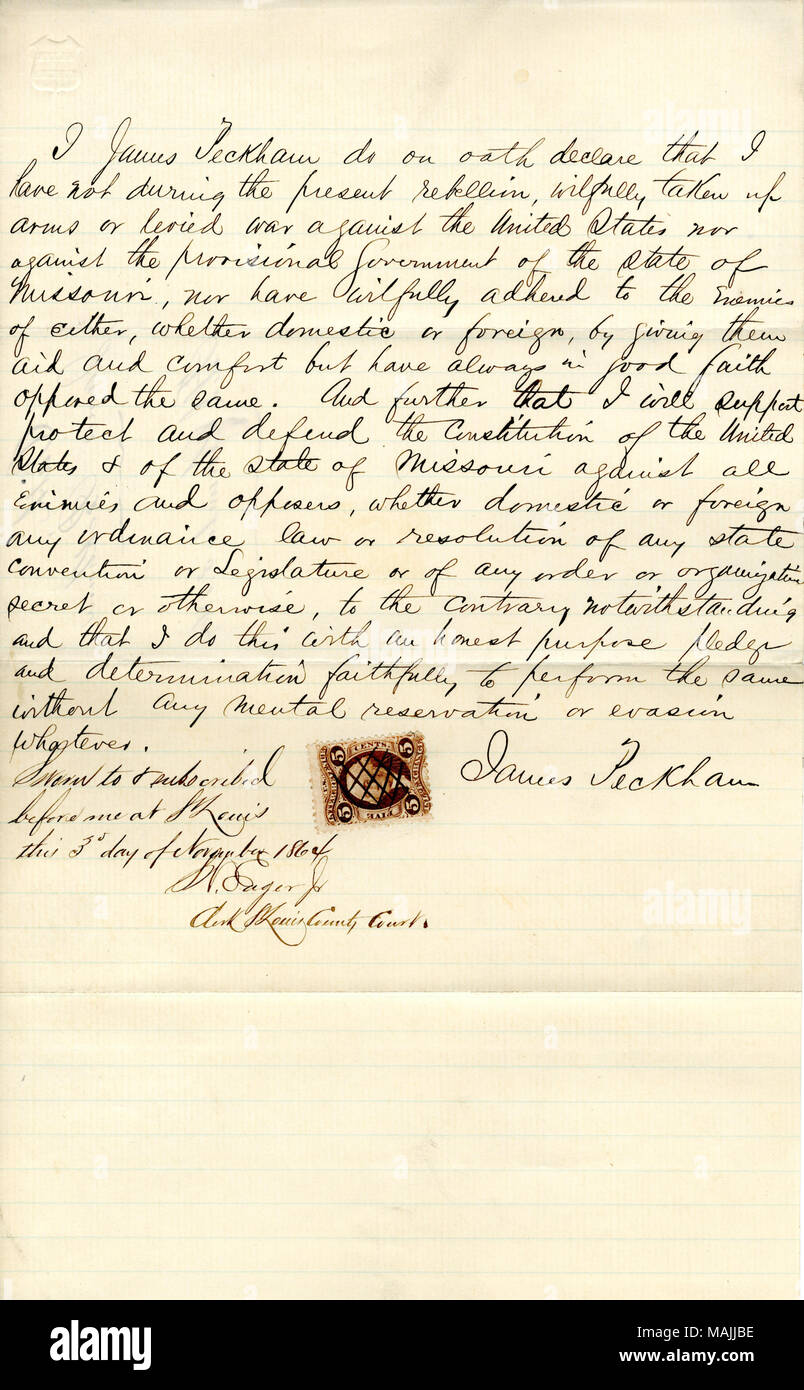 I James Peckham do on oath declare that I
have not during the present rebellion, wilfully taken up
arms or levied war against the United States nor
against the provisional Government of the State of
Missouri, nor have wilfully adhered to the Enemies
of either, whether domestic or foreign, by giving them
aid and comfort but have always in good faith
opposed the same. And further that I will support
protect and defend the Constitution of the United
States & of the state of Missouri against all
Enimies and opposers, whether domestic or foreign
any ordinance law or resolution of any state
convention or Legislature or of any order or organization
secret or otherwise, to the contrary notwithstanding
and that I do this with an honest purpose pledge
and determination faithfully to perform the same
without any mental reservation or evasion
whatever.
James Peckham
Sworn to & subscribed
before me at St Louis
this 3d day of November 1864
Eager Jr
Clerk St Louis County Court.
5 CENTS 5
5 FIVE 5
alamy
Image ID: MAJJBE
www.alamy.com